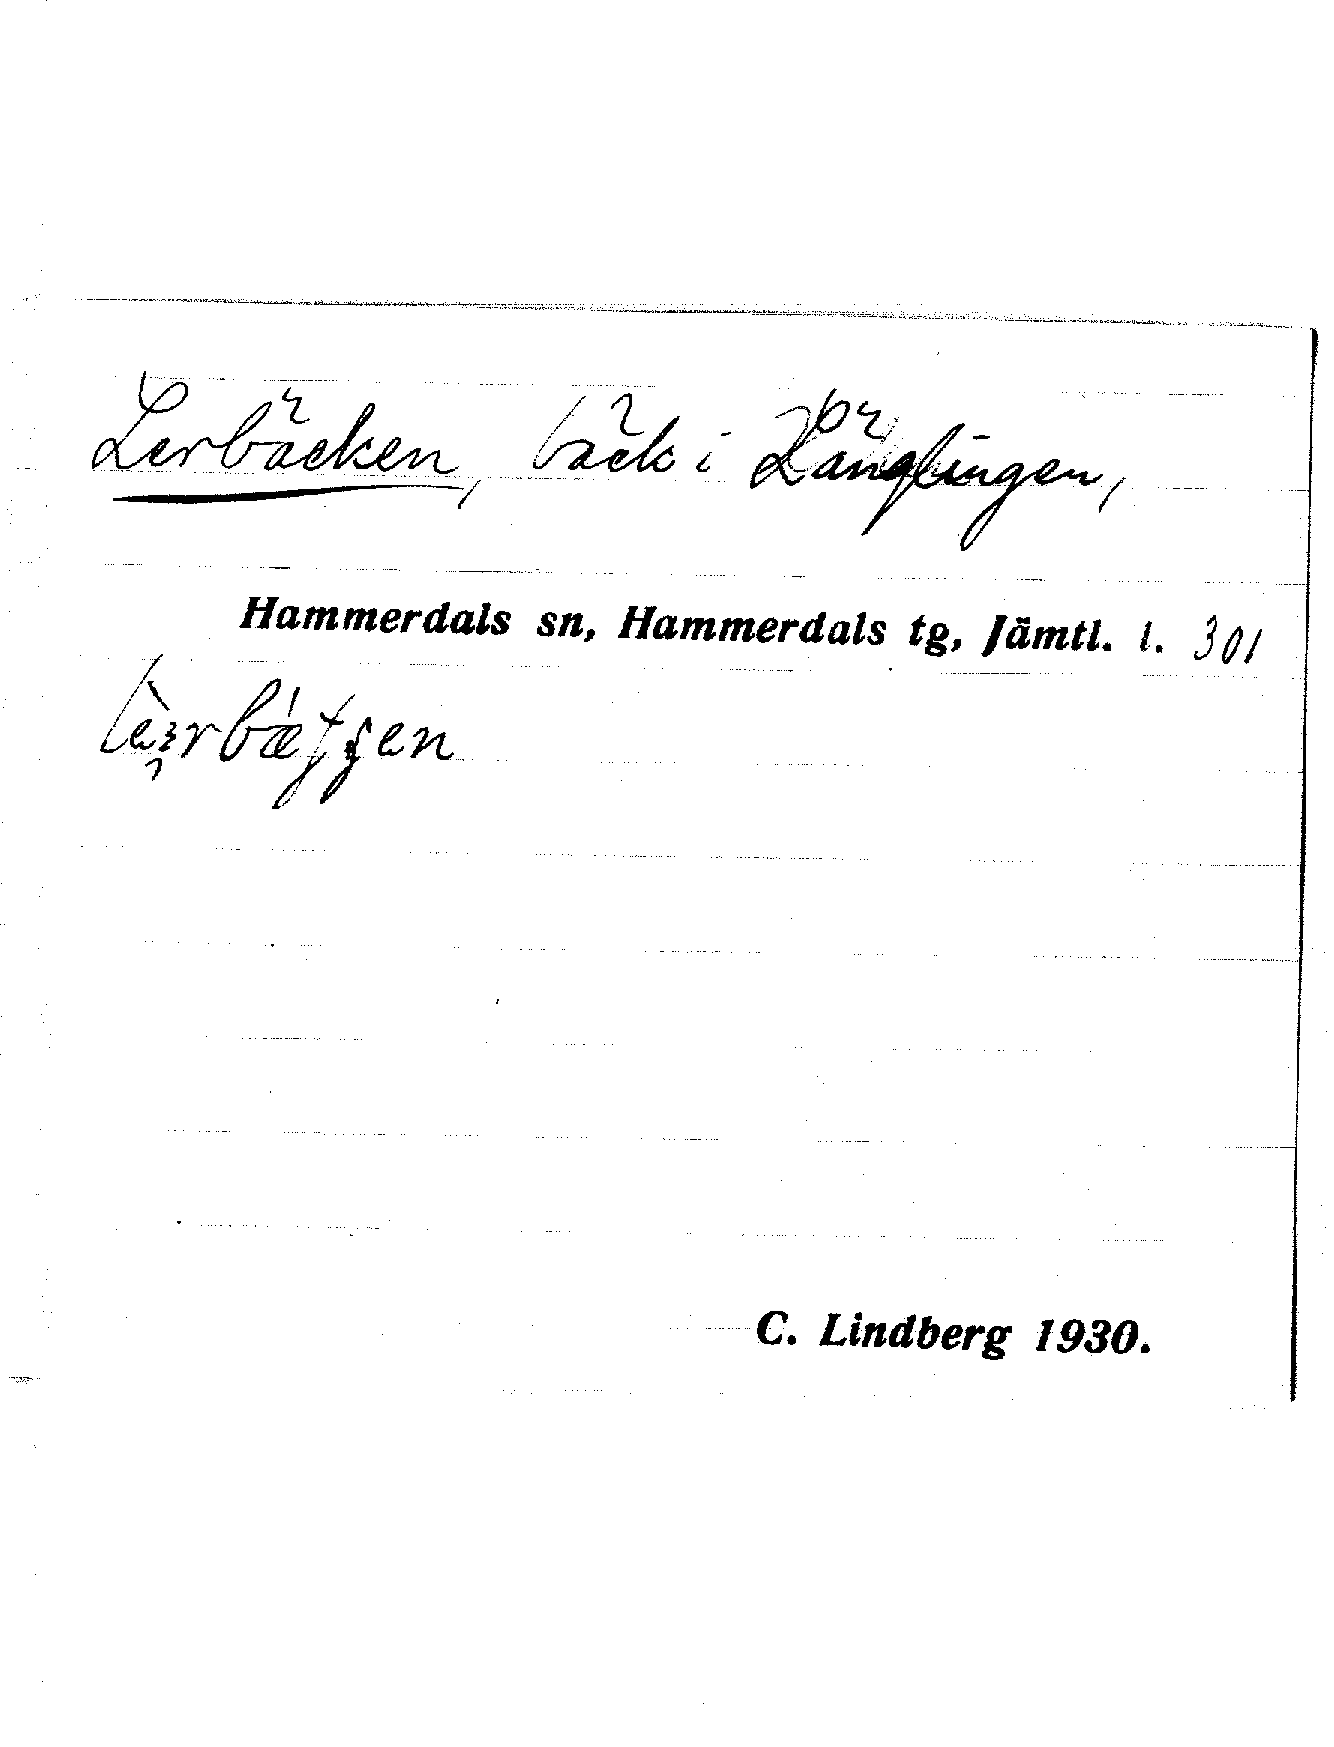 Lerbäcken, bäck i Känglingen,
Hammerdals sn, Hammerdals tg, Jämtl. l. 301
C. Lindberg 1930.